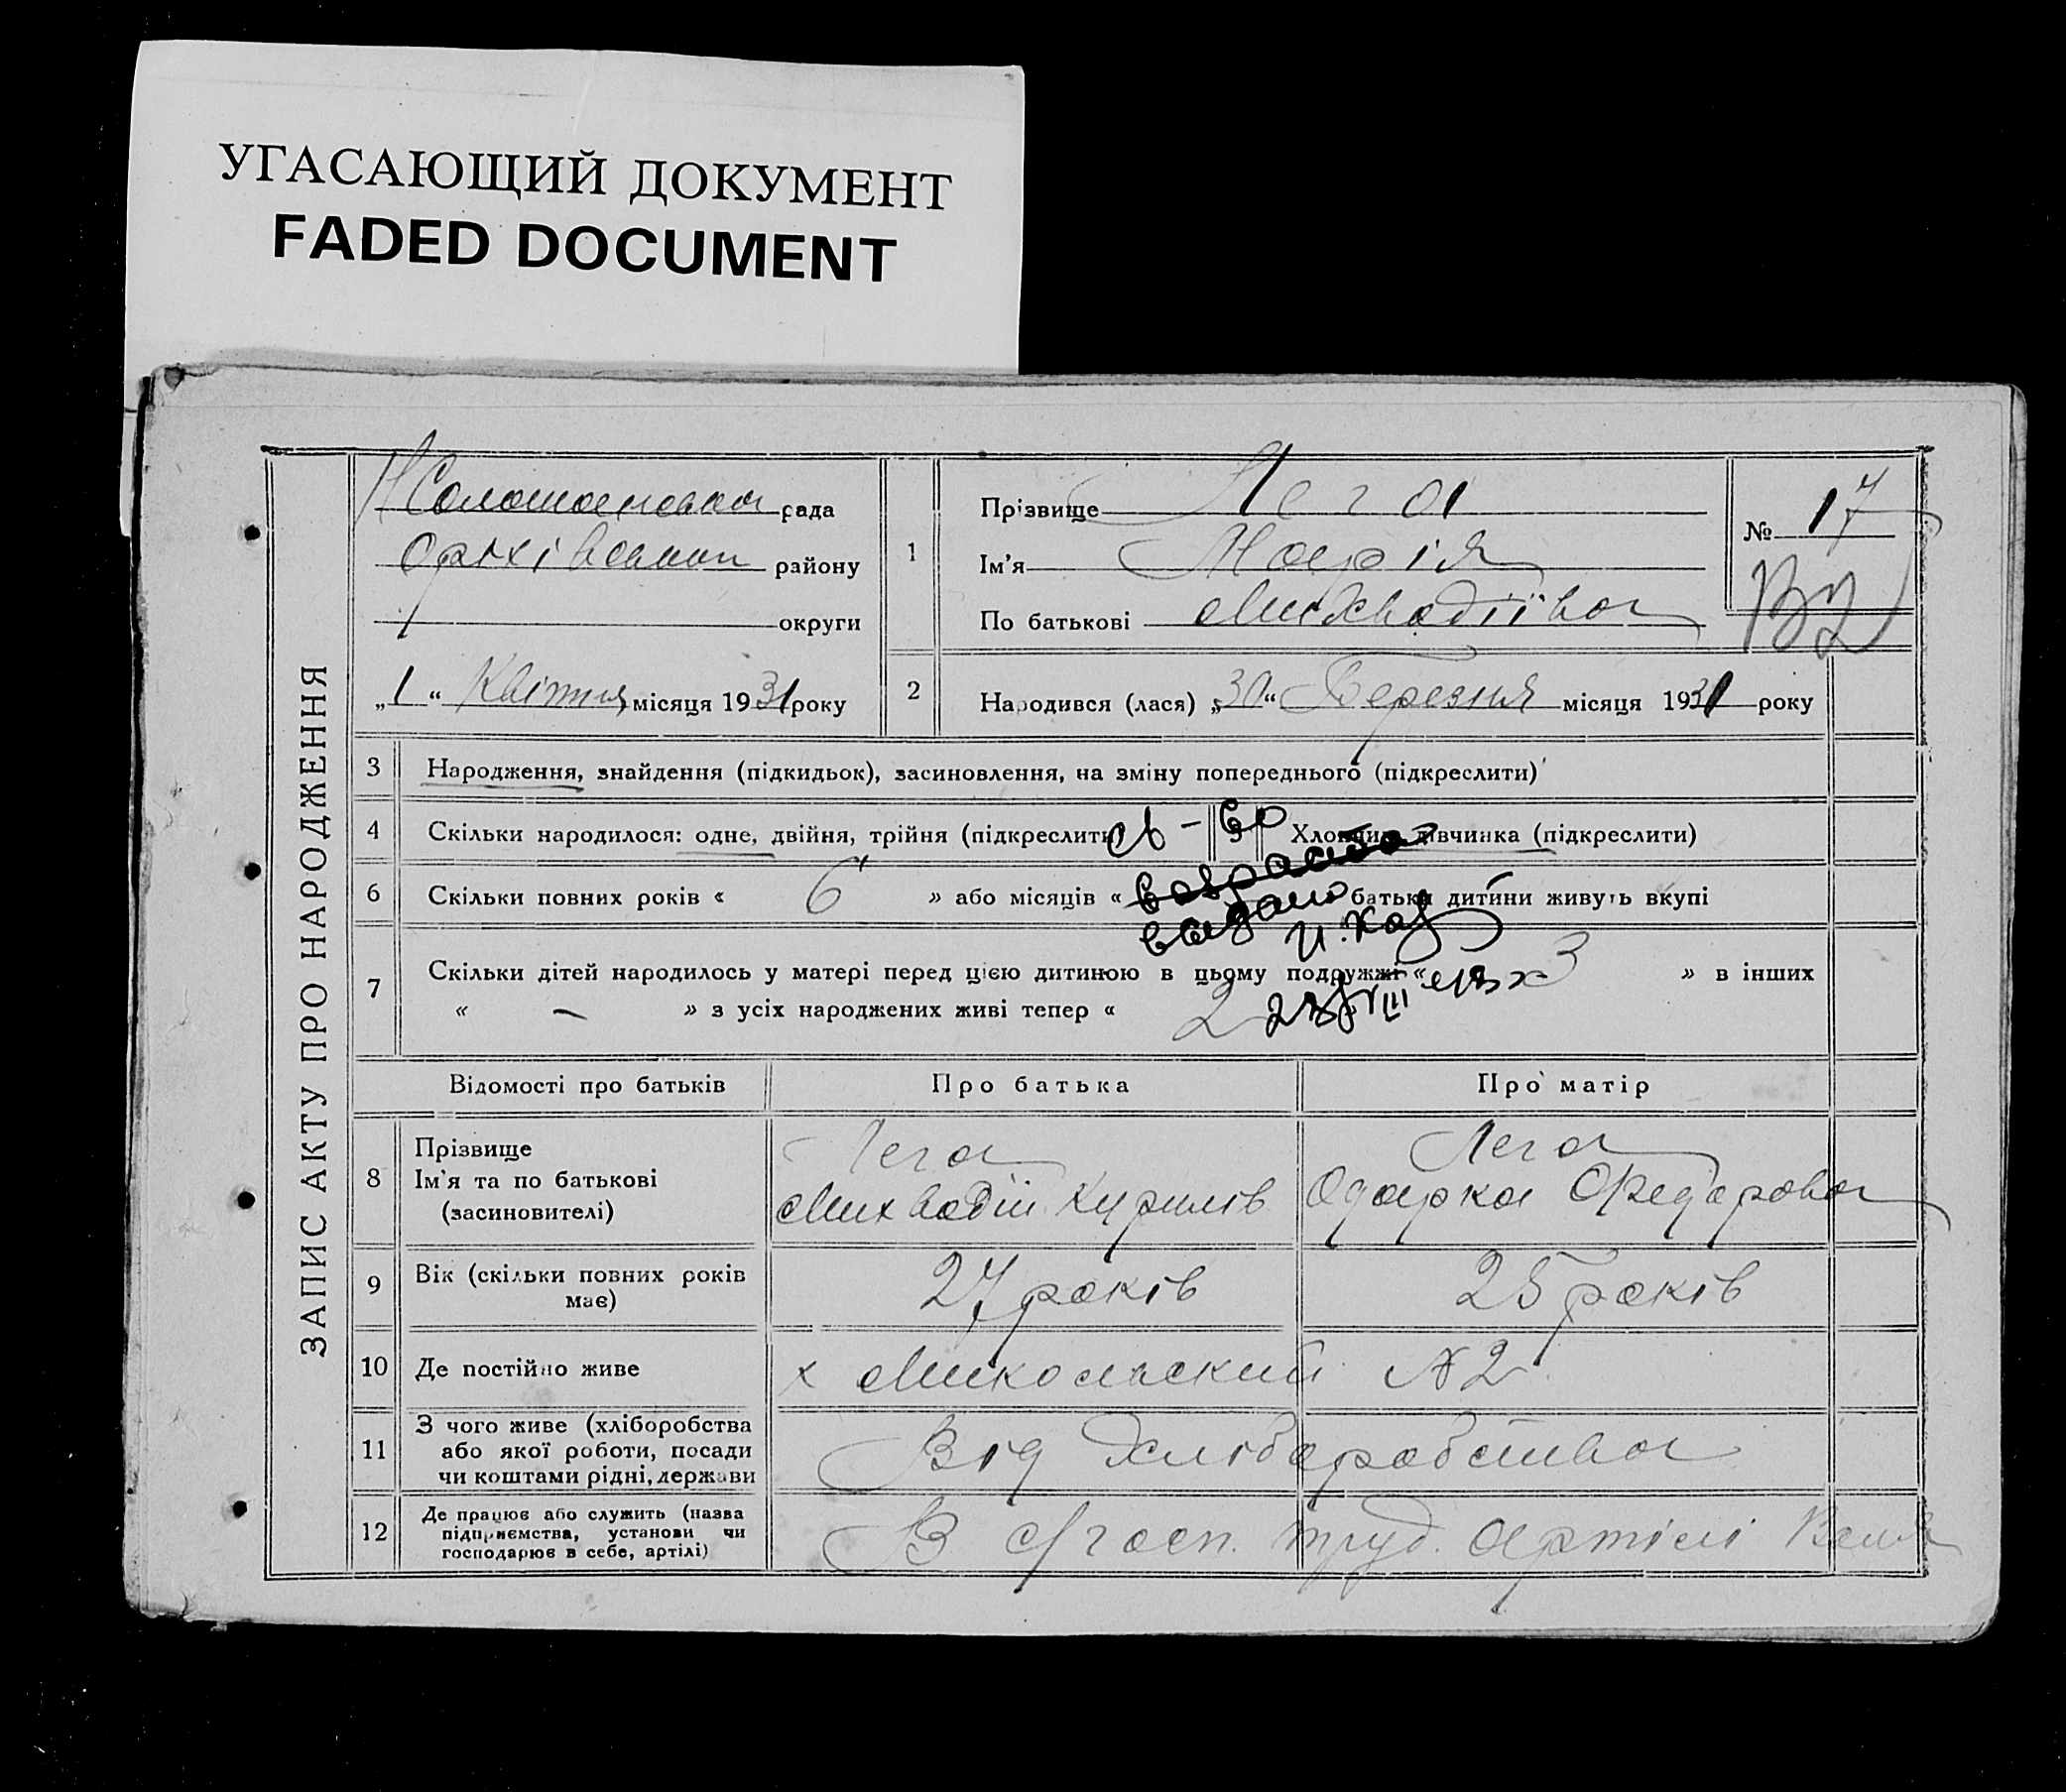 УГАСАЮЩИЙ ДОКУМЕНТ
FADED DOCUMENT
ЗАПИС АКТУ ПРО НАРОДЖЕННЯ
рада
району
округи
„1“ Квітня місяця 1931 року
1
Прізвище Лега
Ім'я Марія
По батькові
№ 17
2
Народився (лася) „30“ Березня місяця 1931 року
3 Народження, знайдення (підкидьок), засиновлення, на зміну попереднього (підкреслити)
4 Скільки народилося: одне, двійня, трійня (підкреслити)
5 Хлопчик, дівчинка (підкреслити)
6 Скільки повних років « 6 » або місяців « батьки дитини живуть вкупі
7 Скільки дітей народилось у матері перед цією дитиною в цьому подружжі « 3 » в інших
« — » з усіх народжених живі тепер « 2
Відомості про батьків
Про батька
Про матір
8 Прізвище
Ім'я та по батькові
(засиновителі)
Лега
Кирилів
Лега
Одарка Федоровна
9 Вік (скільки повних років
має)
27 років
25 років
10 Де постійно живе
х Микольский №2
11 З чого живе (хліборобства
або якої роботи, посади
чи коштами рідні, держави
Від хліборобства
12 Де працює або служить (назва
підприємства, установи чи
господарює в себе, артілі)
В с/госп. труд. артілі